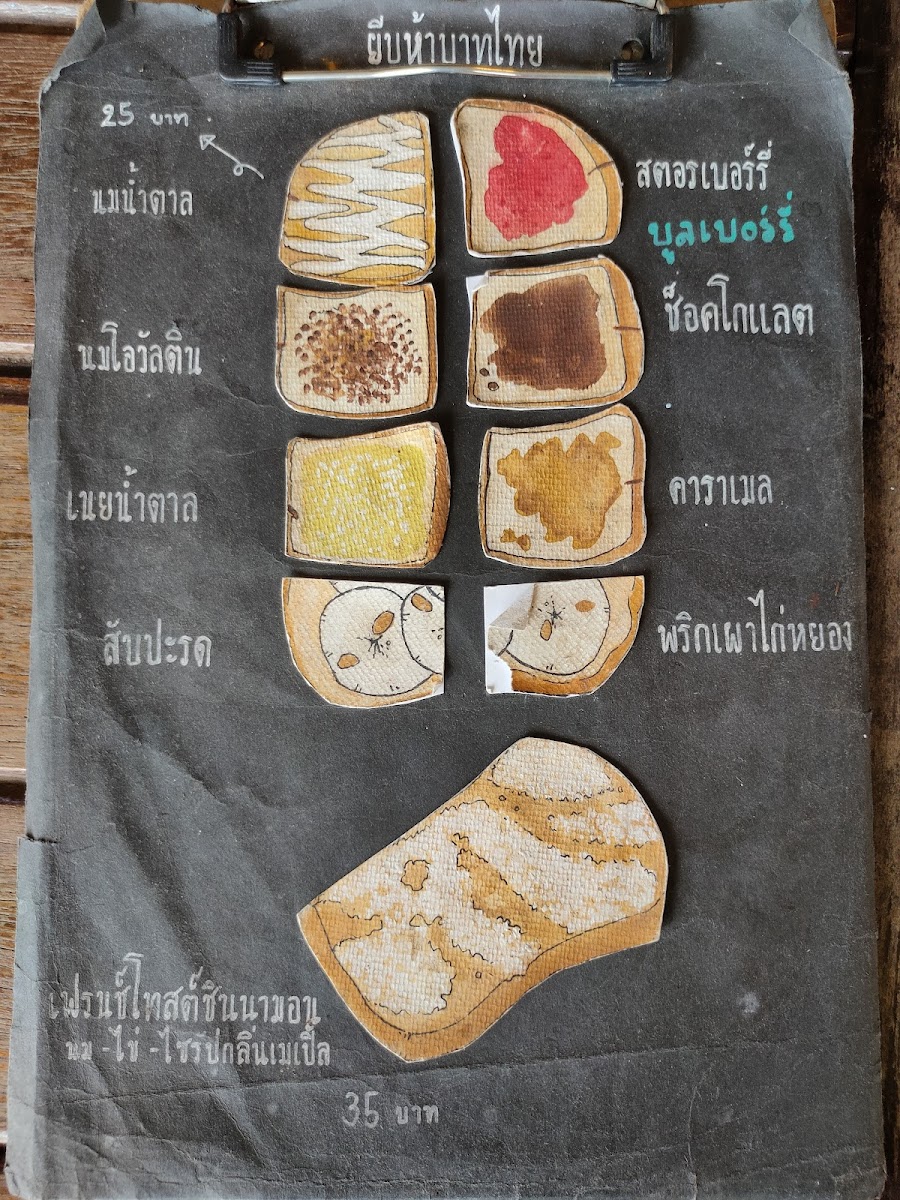 ยีบห้าบาทไทย
25 บาท
นมน้ำตาล
สตอรเบอร์รี่
บูลเบอร์รี่
นมโอวัลติน
ช็อคโกแลต
เนยน้ำตาล
คาราเมล
สับปะรด
พริกเผาไก่หยอง
เฟรนช์โทสต์ซินนามอน
นม -ไข่ -ไซรปกลิ่นเมเปิ้ล
35 บาท